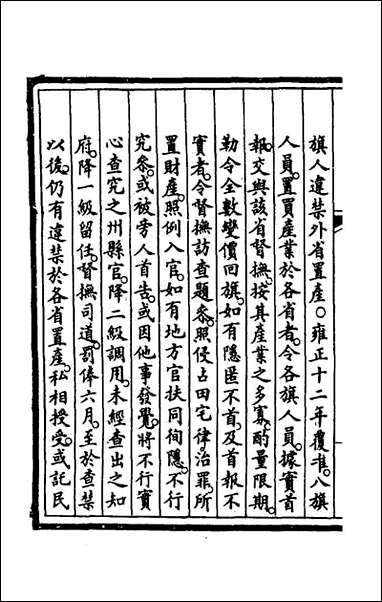 旗人違禁外省置產○雍正十二年覆准八旗
人員置買產業於各省者令各旗人員據實首
報交與該省督撫按其產業之多寡酌量限期
勒令全數變價回旗如有隱匿不首及首報不
實者令督撫訪查題參照侵占田宅律治罪所
置財產照例入官如有地方官扶同徇隱不行
究參或被旁人首告或因他事發覺將不行實
心查究之州縣官降二級調用未經查出之知
府降一級留任督撫司道罰俸六月至於查禁
以後仍有違禁於各省置產私相授受或託民